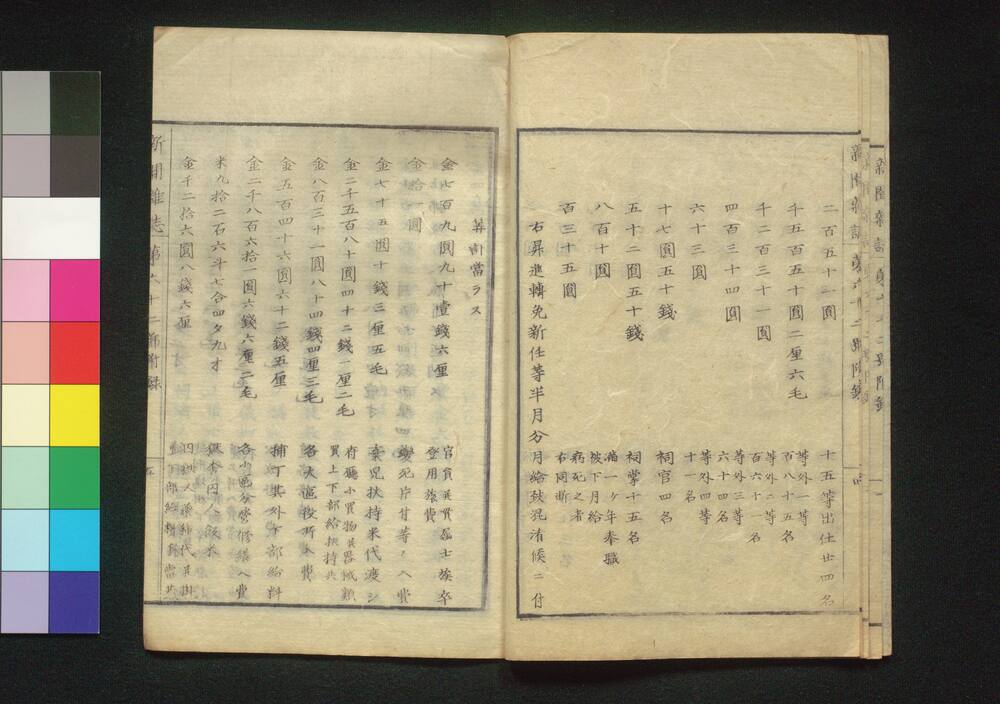 二百五十二圓 十五等出仕廿四名
千五百五十圓二厘六毛 等外一等
百八十五名
千二百三十一圓 等外二等
百六十一名
四百三十四圓 等外三等
六十四名
六十三圓 等外四等
十一名
十七圓五十錢 祠官四名
五十二圓五十錢 祠掌十五名
八百十圓 滿一ヶ年奉職
被下月給
百三十五圓 病死之者
右同斷
右昇進轉免新任等半月分月給致混淆候ニ付
算當ラス
金七百九圓九十壹錢六厘 官員
登用旅費
金拾一圓 変死片付等ノ入費
金七十五圓十錢三厘五毛 棄児扶持米代渡シ
金二千五百八十圓四十二錢一厘二毛 府廳小買物
買上下部給扶持共
金八百三十一圓八十四錢四厘三毛 各大區役所入費
金五百四十六圓六十二錢五厘 捕丁其外下部給料
金二千八百六十一圓六錢六厘二毛 各小區
米九拾二石六斗七合四夕九才
金千二拾六圓八錢六厘
新聞雜誌 第六十二號附録